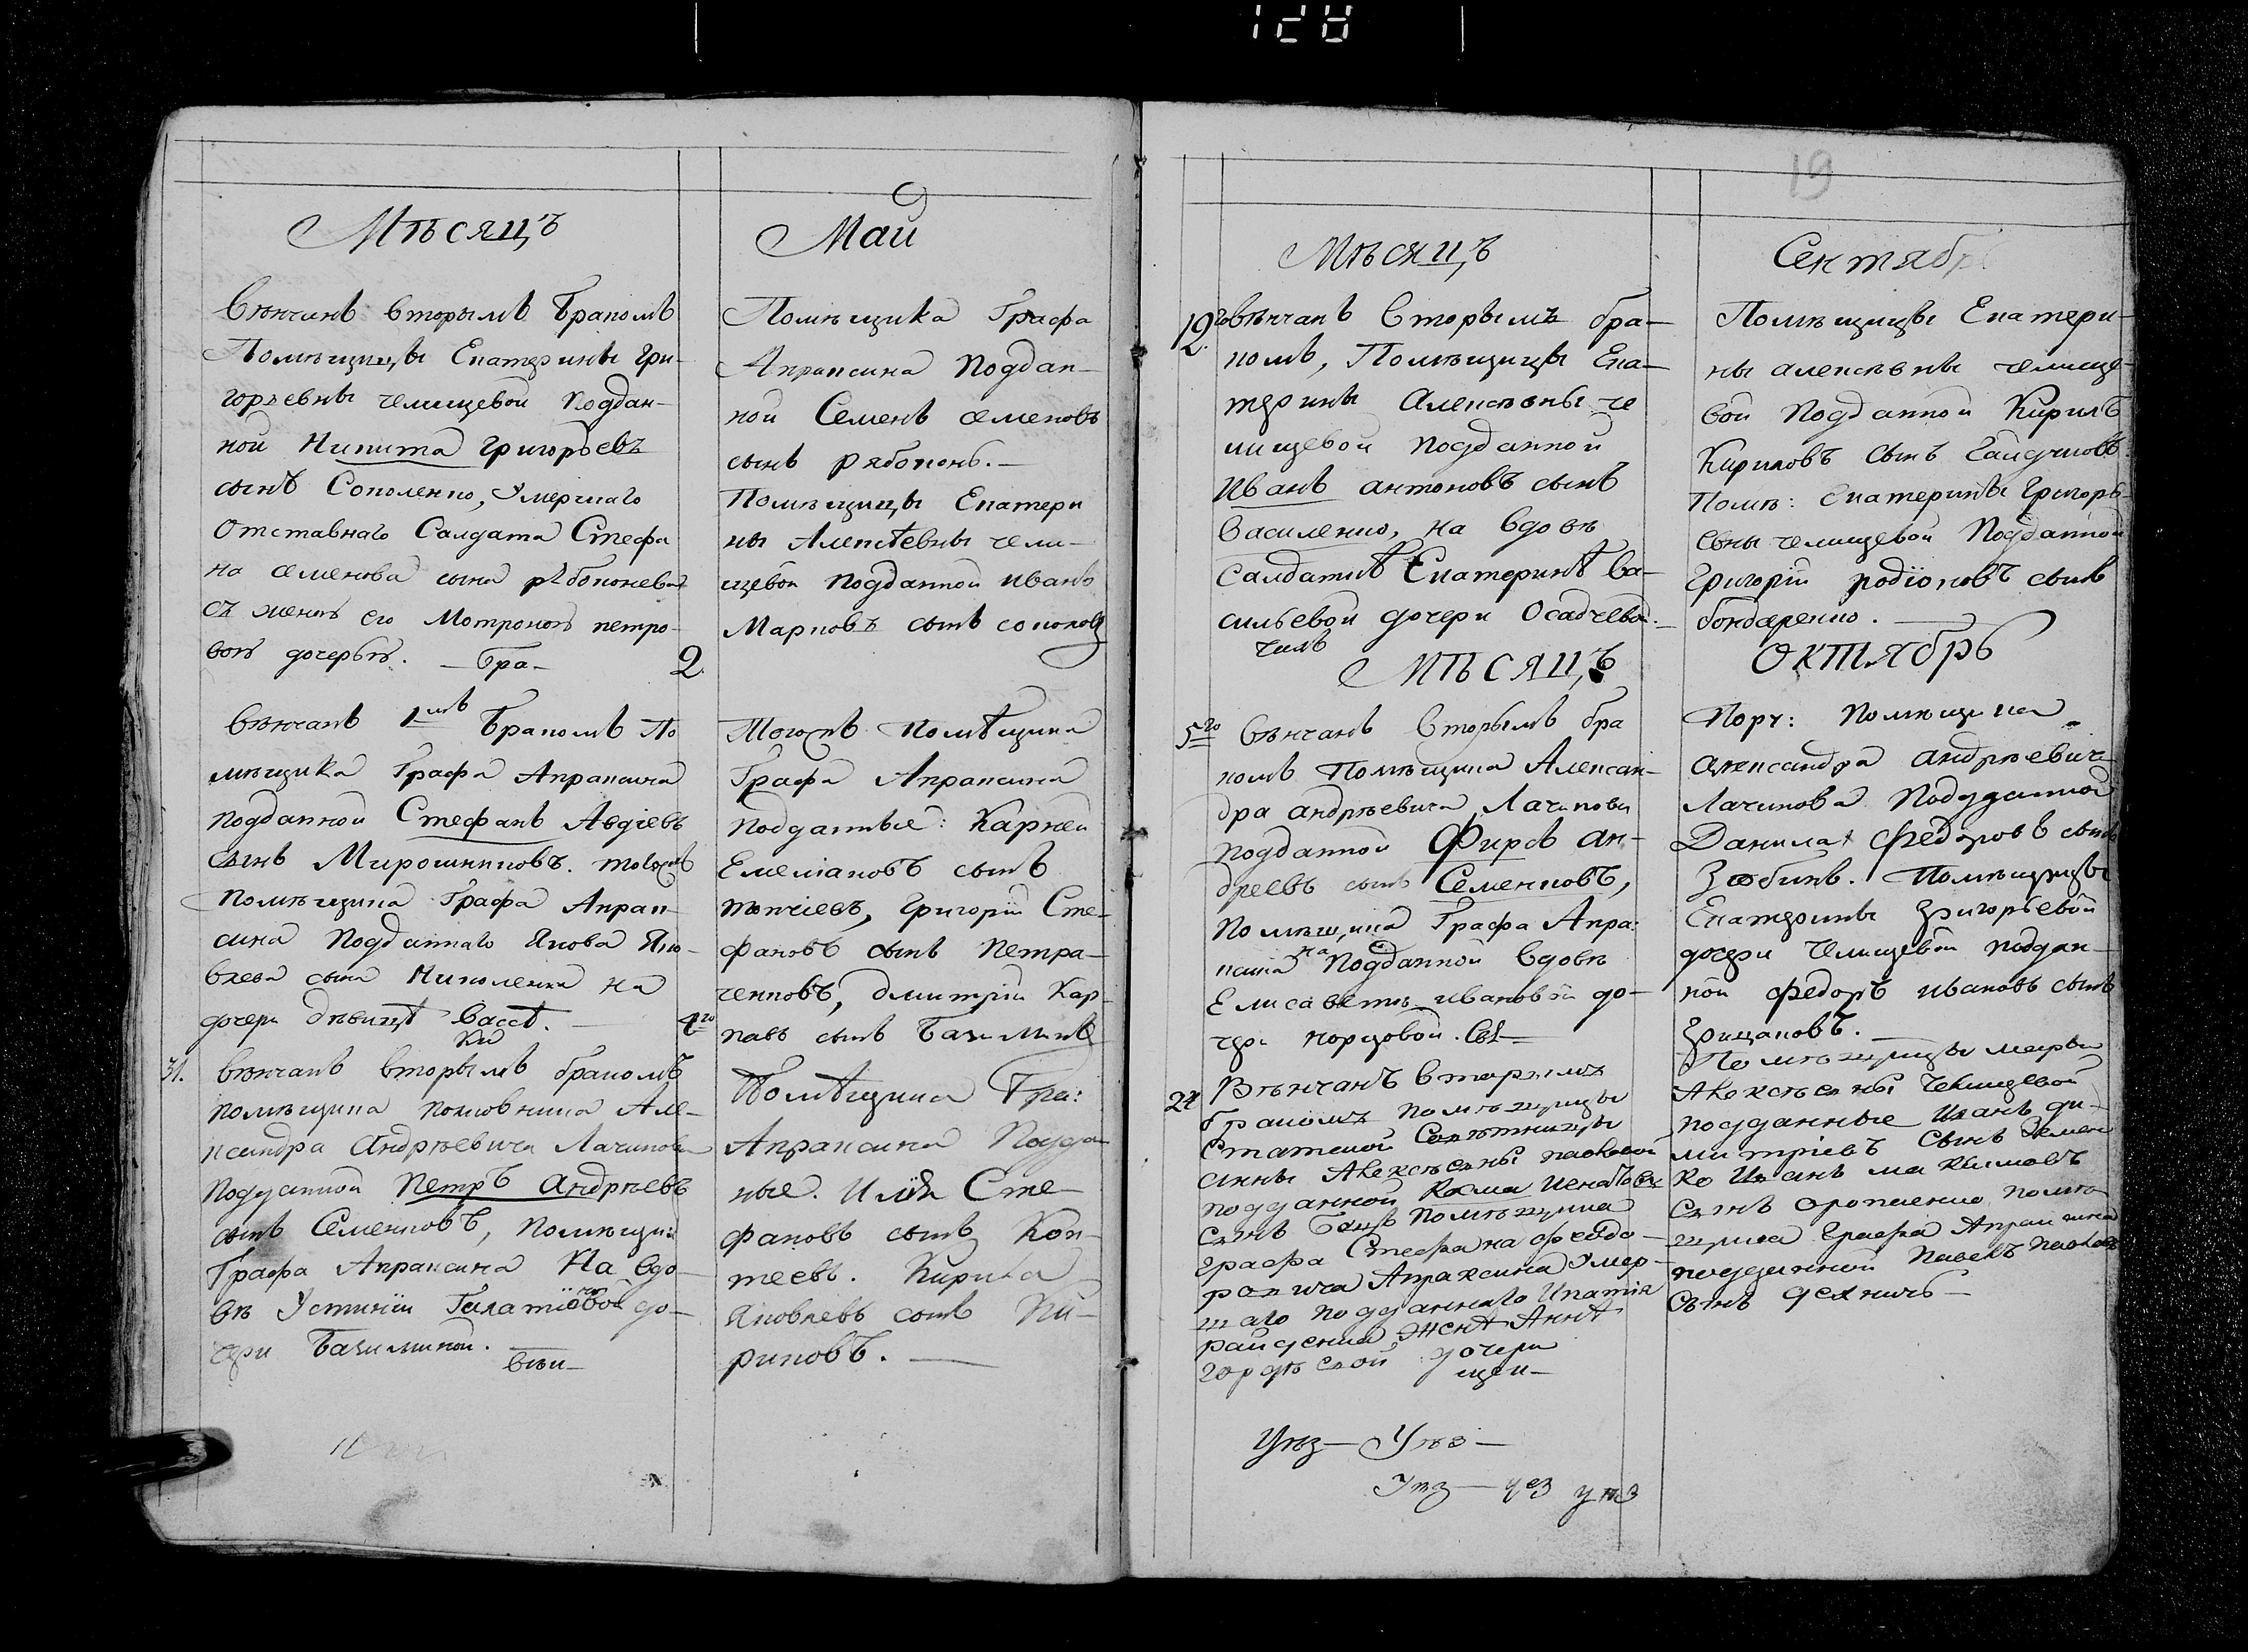 128
Мѣсяцъ
Венчанъ вторымъ бракомъ
Помѣщицы Екатерины Гри-
горьевны челищевой Поддан-
ной Никита Григорьевъ
сынъ Соколенко, Умершаго
Отставнаго Салдата Стефа
на семенова сына
съ женою его Мотроною петро-
вою дочерью. —Бра—
Венчанъ 1мъ Бракомъ По
мѣщика Графа Апраксина
подданной Стефанъ Авдіевъ
сынъ Мирошниковъ. тогожъ
помѣщика Графа Апрак-
сина Подданнаго Якова Яко-
влева сына Николенка на
дочери дѣвицѣ Вассѣ.
31. венчанъ вторымъ бракомъ
помѣщика полковника Але-
ксандра Андрѣевича Лачинова
подданной Петръ Андрѣевъ
сынъ Семенковъ, помѣщик:
Графа Апраксина На вдо-
вѣ Устиніи до-
чери Базилиной.
вѣн—
Май
Помѣщика Графа
Апраксина Поддан-
ной Семенъ семеновъ
сынъ рябоконь.—
Помѣщицы Екатери
ны Алексѣевны чели-
щевой подданной иванъ
Марковъ сынъ
2
Тогожъ помѣщика
Графа Апраксина
подданные: Карней
Емеліановъ сынъ
Григорій Сте-
фановъ сынъ Петра-
ченковъ, дмитрій Кар-
павъ сынъ
4го
Помѣщика Гра:
Апраксина Подда
ные. Илія Сте-
фановъ сынъ Коп-
теевъ. Кирила
Яковлевъ сынъ Ки-
риковъ. —
19
Мѣсяцъ
12го венчанъ вторымъ бра-
комъ, Помѣщицы Ека-
терины Алексѣвны че
лищевой подданной
Иванъ антоновъ сынъ
Василенко, на вдовѣ
салдаткѣ Екатеринѣ Ва-
сильевой дочери Осадчевой.
Мѣсяцъ
5го венчанъ вторымъ бра
комъ Помѣщика Алексан-
дра андрѣевича Лачинова
подданной Фирсъ ан-
дреевъ сынъ Семенковъ,
Помѣщика Графа Апра:
ксина на Подданной вдовѣ
Елисаветѣ ивановой до-
чери
24 Вѣнчанъ вторымъ
бракомъ помѣщицы
статской Совѣтницы
анны Алексѣевны
подданной Козма Игнатовъ
сынъ помѣщика
графа Стефана федо-
ровича Апраксина Умер-
шаго подданнаго Ипатія
женѣ Аннѣ
гордѣевой дочери
щен—
Уѣз— Уѣз—
Уѣз— уез уѣз
Сентябр
Помѣщицы Екатери-
ны алексѣвны челище-
вой Подданной Кирилъ
Кириловъ сынъ Гайдуковъ
Помѣ: екатерины Григорь-
евны челищевой Подданной
Григорій родіоновъ сынъ
бондаренко.
Октябрь
Пору: помѣщика
александра андрѣевича
Лачинова Подданной
Данила федоровъ сынъ
Зюбинъ. Помѣщицы
Екатерины Григорьевой
дочери Челищевой поддан-
ной федоръ ивановъ сынъ
Грицаковъ.—
Помѣщицы марьи
Алексѣевны Челищевой
подданные Иванъ ди-
митріевъ сынъ
ко Иванъ максимовъ
сынъ помѣ
щика Графа Апраксина
подданной Павелъ
сынъ